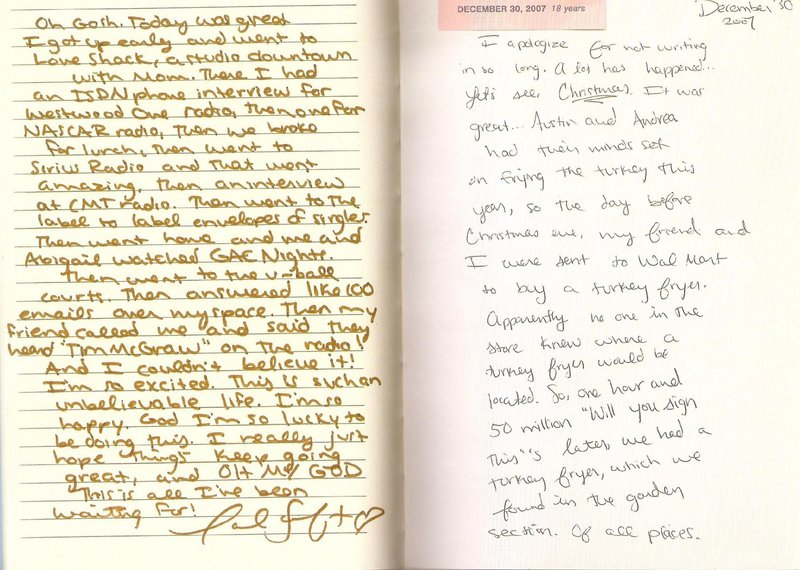 Oh Gosh. Today was great
I got up early and went to
Love Shack, a studio downtown
with Mom. There I had
an ISDN phone interview for
Westwood One radio, Then one for
NASCAR radio, Then we broke
for lunch, Then went to
Sirius Radio and That went
amazing, Then an interview
at CMT radio. Then went to The
label to label envelopes of singles.
Then went home and me and
Abigail watched GAC Nights.
Then went to the v-ball
courts. Then answered like 100
emails over myspace. Then my
friend called me and said they
heard "Tim McGraw" on The radio!
And I couldn't believe it!
I'm so excited. This is such an
unbelievable life. I'm so
happy. God I'm so lucky to
be doing this. I really just
hope Things keep going
great, and OH MY GOD
This is all I've been
waiting for!
DECEMBER 30, 2007 18 years
December 30
2007
I apologize for not writing
in so long. A lot has happened...
Let's see, Christmas. It was
great... Austin and Andrea
had their minds set
on frying the turkey this
year, so the day before
Christmas eve, my friend and
I were sent to Wal Mart
to buy a turkey fryer.
Apparently no one in the
store knew where a
turkey fryer would be
located. So, one hour and
50 million "Will you sign
This"'s later, we had a
turkey fryer, which we
found in the garden
section. Of all places.